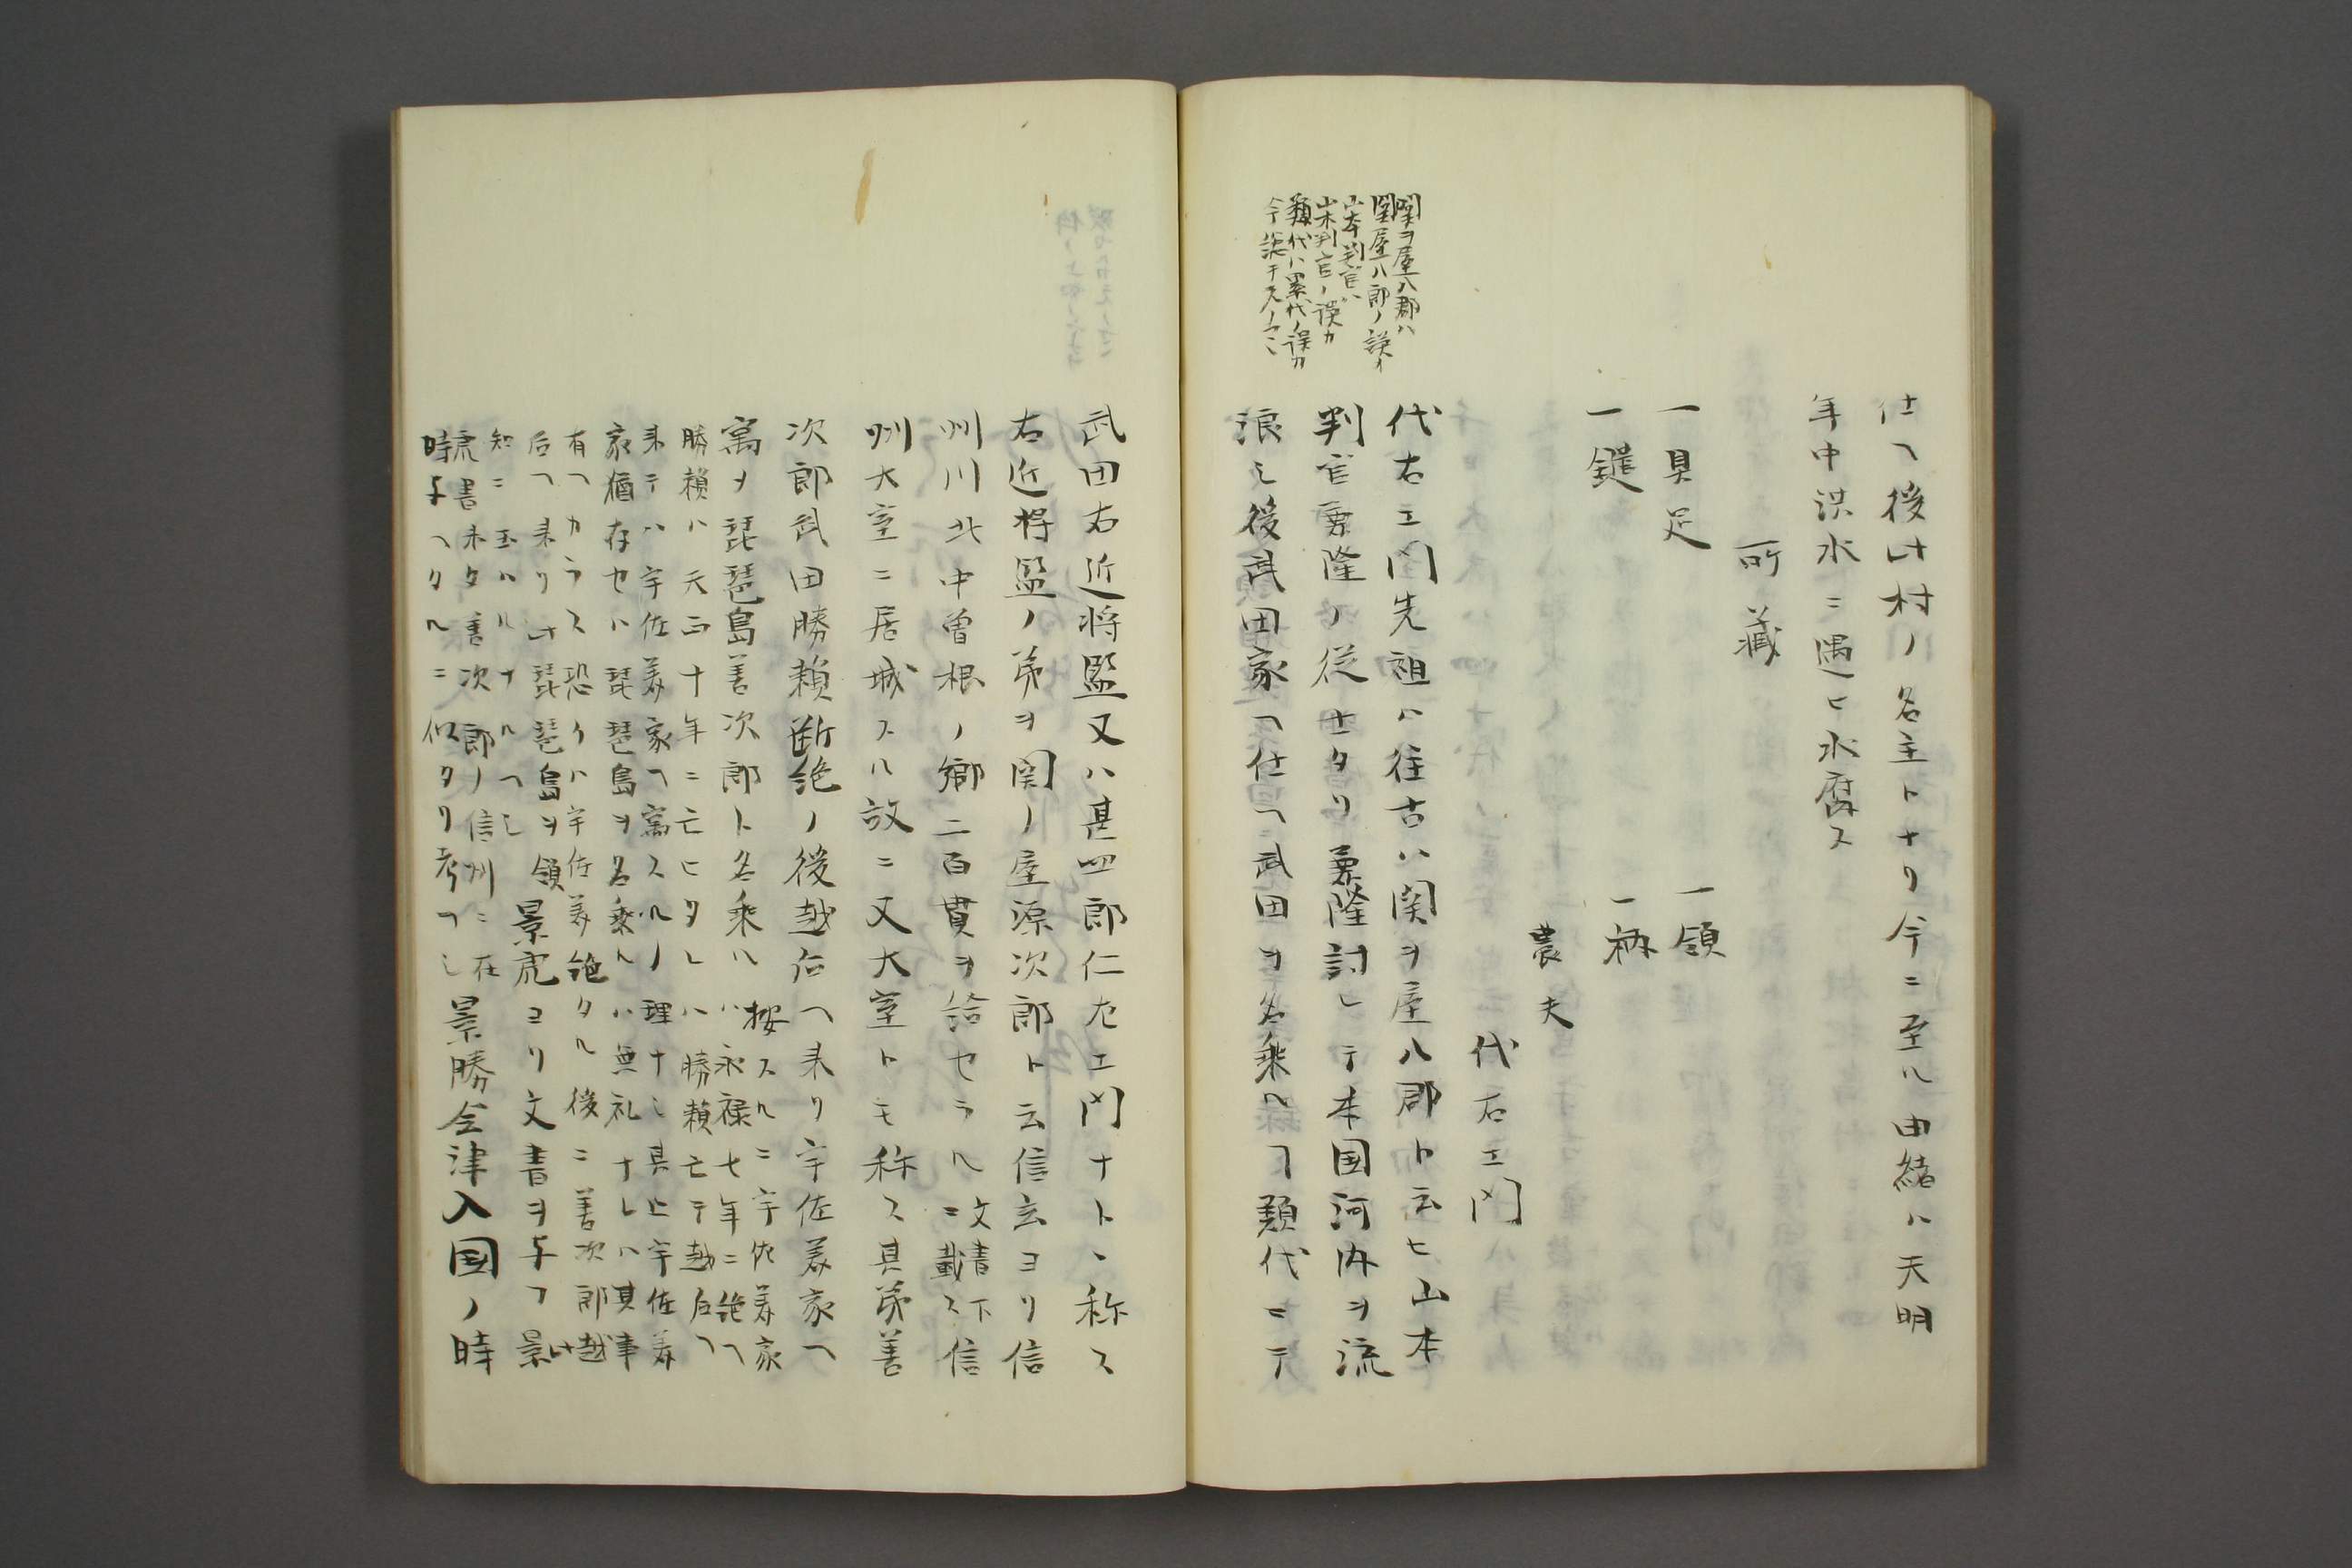 仕ヘ後此村ノ名主トナリ今ニ至ル由緒ハ天明
年中洪水ニ遇ヒ水腐ス
所藏
一具足 一領
一鑓 一柄
農夫
代右エ門
代右エ門先祖ハ往古ハ関ヲ屋八郡ト云ヒ山本
判官兼隆ノ従セタリ兼隆討レテ本国河内ヲ流
浪シ後武田家ヘ仕ヘ武田ヲ名乗ルフ類代ニテ
関ヲ屋八郡ハ
関屋八郎ノ誤イ
山本判官ハ
山木判官ノ誤カ
類代ハ累代ノ誤カ
武田右近将監又ハ甚四郎仁左エ門ナトヽ称ス
右近将監ノ弟ヲ関ノ屋源次郎ト云信玄ヨリ信
州川北中曽根ノ郷二百貫ヲ給セラル文書下ニ載ス信
州大室ニ居城スル故ニ又大室トモ称ス其弟善
次郎武田勝頼断絶ノ後越后ヘ来リ宇佐美家ヘ
寓ヲ琵琶島善次郎ト名乗ル按スルニ宇佐美家ハ永禄七年ニ絶ヘ
勝頼ハ天正十年ニ亡ヒタレハ勝頼亡テ越后ヘ
来テハ宇佐美家ヘ寓スルノ理ナシ其上宇佐美
家猶存セハ琵琶島ヲ名乗ルハ無礼ナレハ其事
有ヘカラス恐クハ宇佐美絶タル後ニ善次郎越
后ヘ来リ此琵琶島ヲ領
知ニ玉ハルナルヘシ
景虎ヨリ文書ヲ与フ此景
虎書来タ善次郎ノ信州ニ在
時与ヘタルニ似タリ考フヘシ
景勝会津入国ノ時